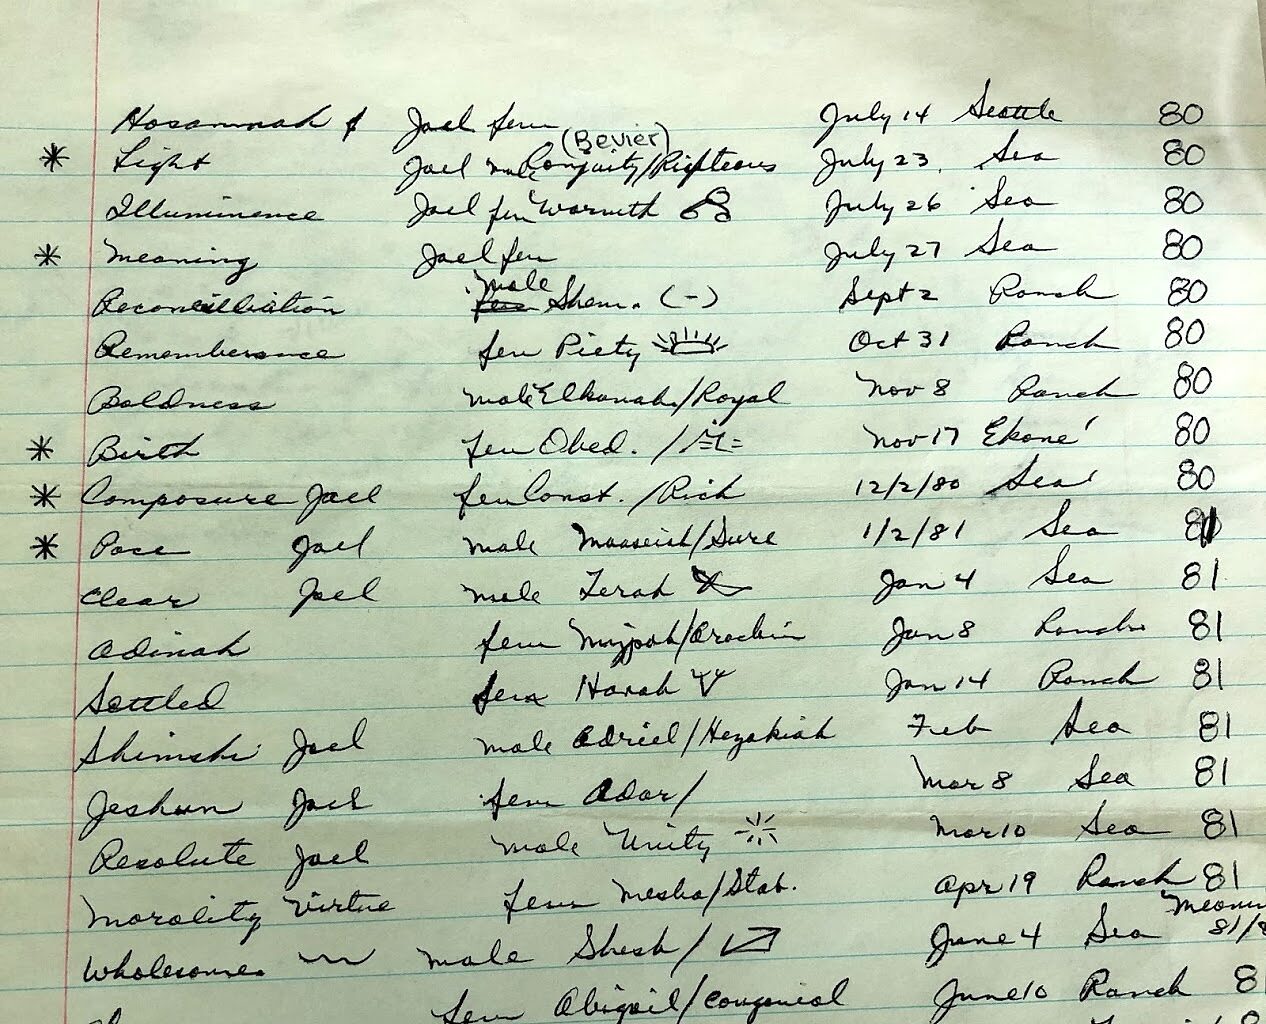 Hosannah & Jael fem July 14 Seattle 80
(Bevier)
* Light Jael male Congruity/Righteous July 23 Sea 80
Illuminence Jael fem Warmth July 26 Sea 80
* Meaning Jael fem July 27 Sea 80
male
Reconcilliation fem Shem. (-) Sept 2 Ranch 80
Rememberance fem Piety Oct 31 Ranch 80
Boldness male Elkanah/Royal Nov 8 Ranch 80
* Birth fem Obed. / Nov 17 Ekone' 80
* Composure Jael fem Const. /Rich 12/2/80 Sea 80
* Pace Jael male /Sure 1/2/81 Sea 81
Clear Jael male Terah Jan 4 Sea 81
Adinah fem Jan 8 Ranch 81
Settled fem Harah Jan 14 Ranch 81
Shimshi Jael male Adriel/Hezakiah Feb Sea 81
Jeshun Jael fem Adar/ Mar 8 Sea 81
Resolute Jael male Unity Mar 10 Sea 81
Morality Virtue fem Mesha/Stab. Apr 19 Ranch 81
Wholesome male Shesh/ June 4 Sea 81/8
fem Abigail/Congenial June 10 Ranch 8